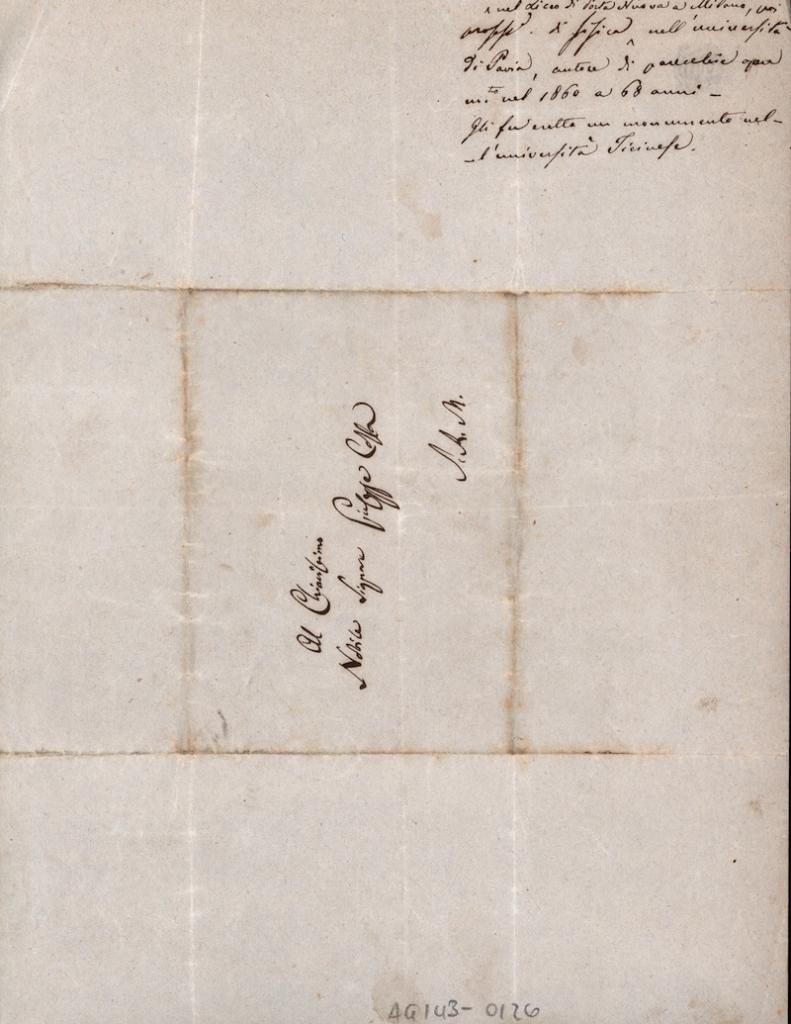 nel Liceo di Porta Nuova a Milano, poi
profess.e di fisica nell'università
di Pavia, autore di parecchie opere
m.to nel 1860 a 68 anni –
Gli fu eretto un monumento nel-
-l'università Ticinese.
Al Chiarissimo
Nobile Signor Giuseppe
S. R. M.
AG143-0126